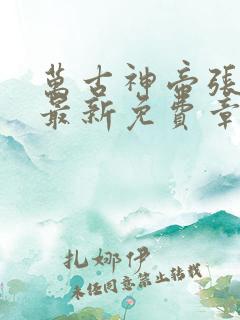 萬古神帝張
最新免費章
扎娜伊
未经同意禁止转载